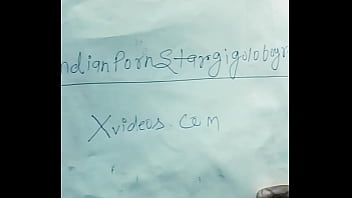 ndianPornStargigoloboy
Xvideos.com